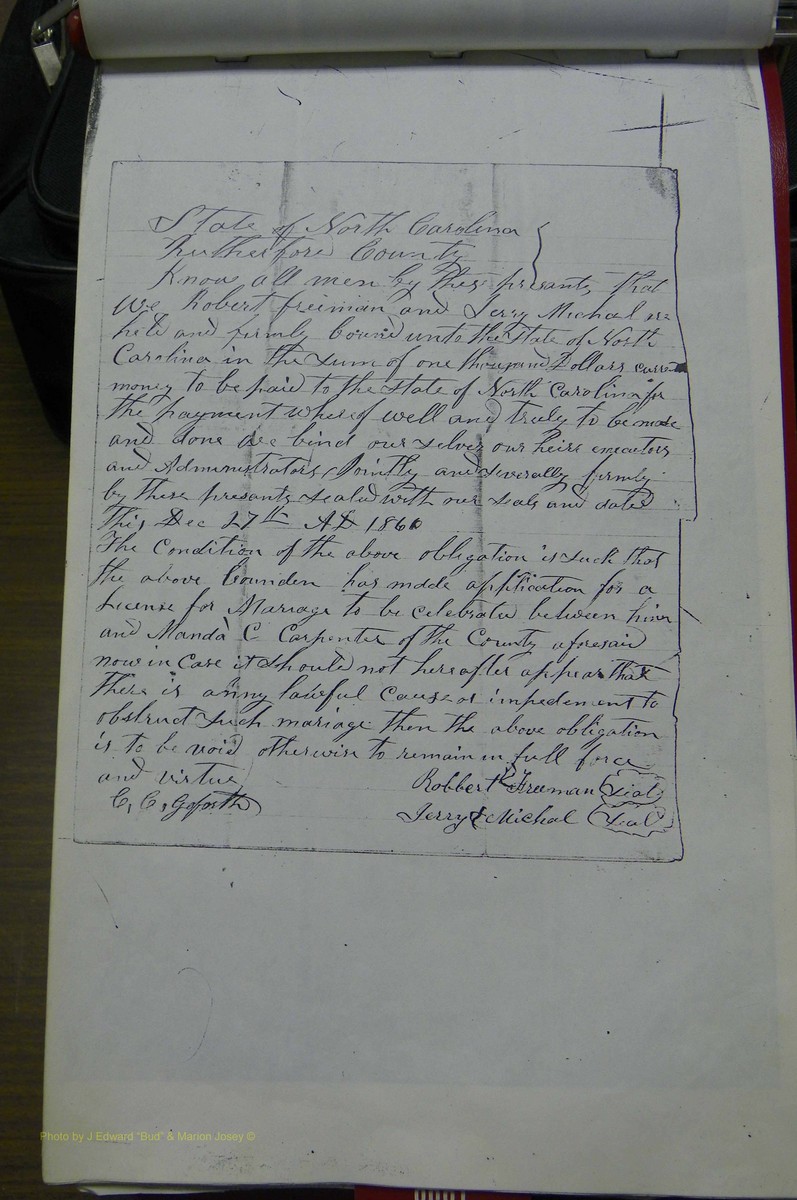 State of North Carolina
Rutherford County
Know all men by these presants that
We Robert freeman and Jerry Michael are
held and firmly bound unto the State of North
Carolina in the sum of one thousand Dollars current
money to be paid to the state of North Carolina for
the payment whereof well and truly to be made
and done we bind our selves our heirs executors
and Administrators Jointly and severally firmly
by these presants sealed with our seals and dated
this Dec 27th AD 1860
The Condition of the above obligation is such that
the above bounden has made application for a
License for Mariage to be celebrated between him
and Manda C Carpenter of the County aforesaid
now in case it should not hereafter appear that
there is anny lawful cause or impedement to
obstruct such mariage then the above obligation
is to be void otherwise to remain in full force
and virtue
Robbert Freeman Seal
C, C, Goforth
Jerry Michal Seal
Photo by J Edward "Bud" & Marion Josey ©